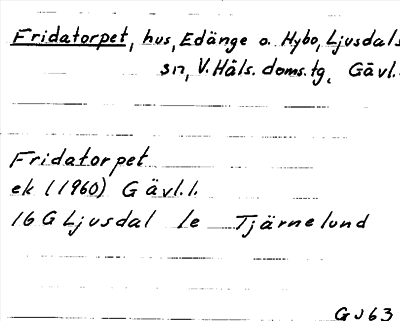 Fridatorpet, hus, Edänge o. Hybo, Ljusdals
sn, V. Häls. doms.tg, Gävl.
Fridatorpet
ek (1960) Gävl.l.
16 G Ljusdal 1e Tjärnelund
GJ63